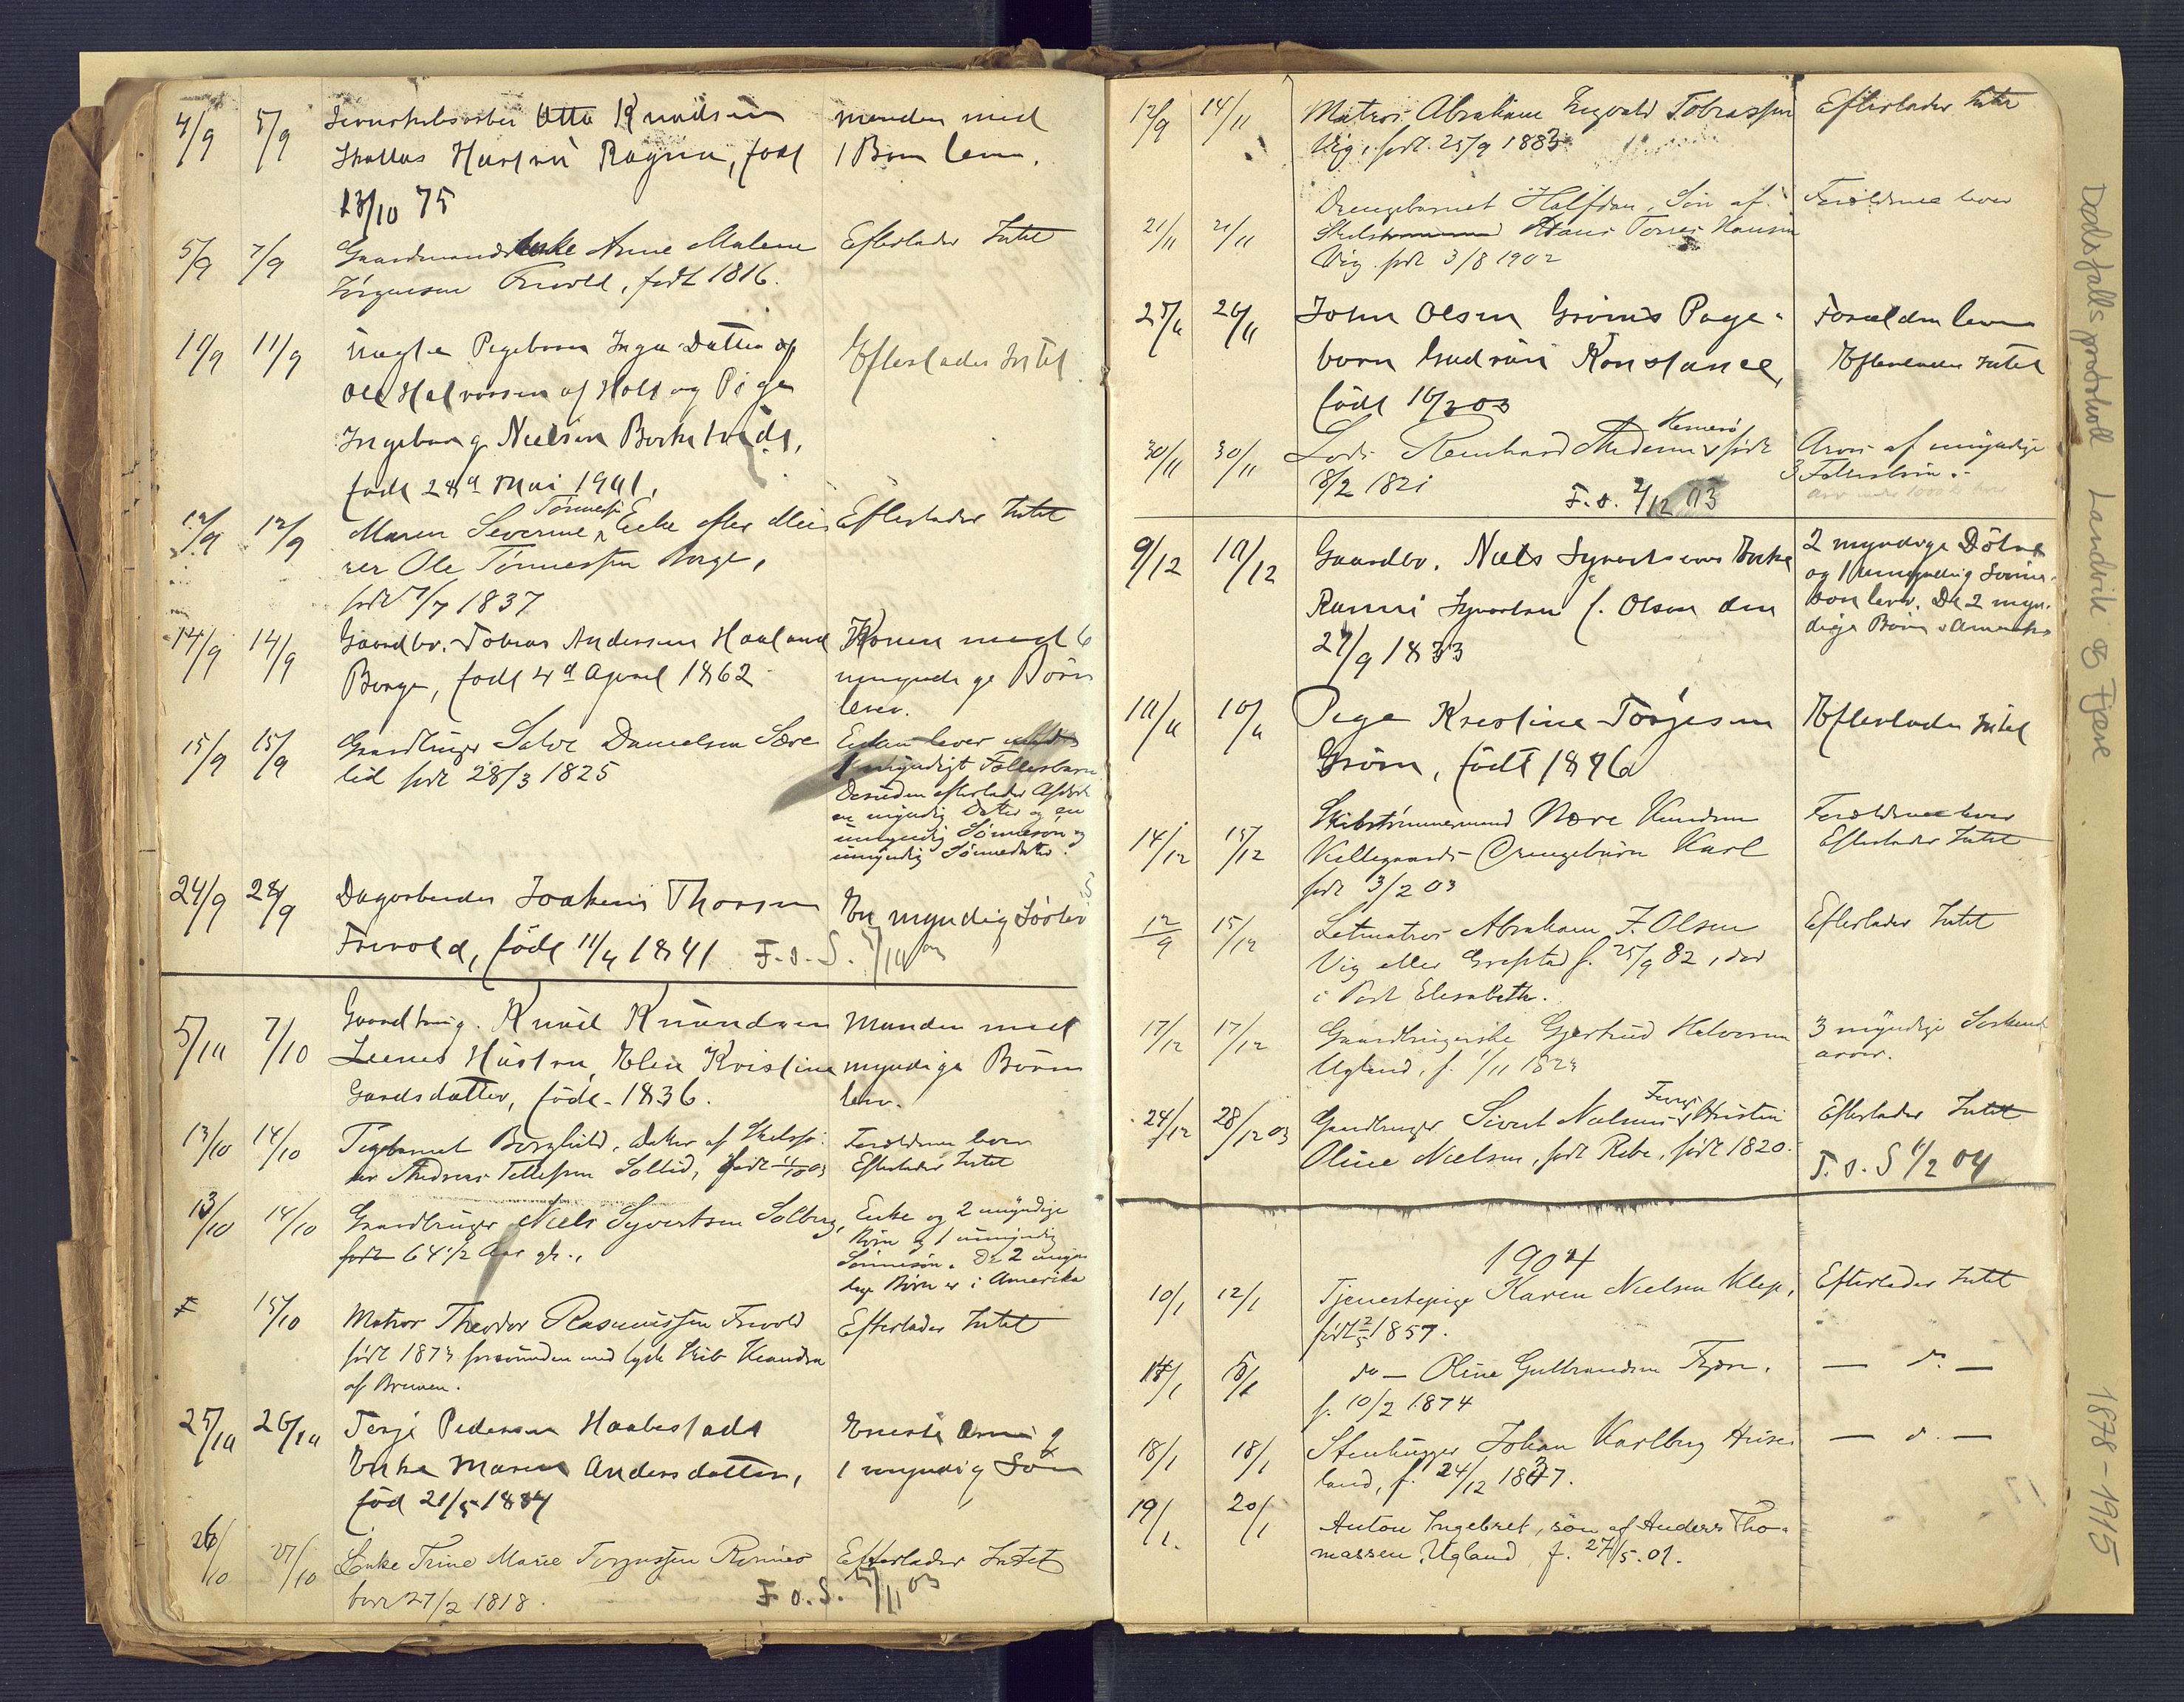 4/9 5/9 Otto Knudsen Manden med
Hustru Ragna, født 1 Barn lever.
13/10 75
5/9 7/9 Gaardmandsenke Anne Malene Efterlader Intet
Jørgensen Frivold, født 1816.
11/9 11/9 Uægte Pigebarn Inga Datter af Efterlader Intet
Ole Halvorsen af Holt og Pige
Ingeborg Nielsen
født 28d Mai 1901.
Tønnesse
12/9 12/9 Maren Severine Enke efter Mu- Efterlader Intet
rer Ole Tønnessen Berge,
født 7/7 1837
14/9 14/9 Gaardbr. Tobias Andersen Haaland Konen med 6
Berge, født 4d April 1862 umyndige Børn
lever.
15/9 15/9 Gaardbruger Salve Danielsen Sære Enken lever
lid født 28/3 1825 1 myndigt Fællesbarn
Desuden efterlader Afdøde
en myndig Datter og en
umyndig Sønnesøn og
umyndig Sønnedatter.
24/9 28/9 Dagarbeider Joakim Thorsen En myndig Søster
Frivold, født 11/4 1841 F.o.S. 5/10 03
5/10 7/10 Gaardbrug. Knud Knudsen Manden med
Hustru, Elen Kristine myndige Børn
Gardsdatter, født 1836. lever.
13/10 14/10 Pigebarnet Borghild, Datter af Skibsfø- Forældrene lever
rer Andreas Tellefsen Sollid, født Efterlader Intet
13/10 14/10 Gaardbruger Niels Syvertsen Solberg, Enke og 2 myndige
født 64 1/2 Aar gl., Børn og 1 umyndig
Sønnesøn. De 2 myn
dige Børn er i Amerika
15/10 Matros Theodor Rasmussen Frivold Efterlader Intet
født 1873 forsvunden med tysk Skib
af Bremen.
25/10 26/10 Terje Pedersen Haabestads Eneste Arving
Enke Maren Andersdatter, 1 myndig Søn
fød 21/5 1884
26/10 27/10 Enke Trine Marie Torjussen Rønnes Efterlader Intet
født 27/2 1818. F.o.S. 5/11 03
12/9 14/11 Matros Abraham Ingvald Tobiassen Efterlader Intet
Vig, født 25/9 1883
Drengebarnet Halfdan, Søn af Forældrene lever
21/11 21/11 Hans Torres Hansen
Vig født 3/8 1902
25/11 26/11 John Olsen Grøms Pige- Forældre lever
barn Gudrun Konstance, Efterlader Intet
født 16/2 03
30/11 30/11 Lods Reinhard Pedersen Hesnesø født Arves af myndige
8/2 1821 3 Fællesbørn.
F.o. 2/12 03
9/12 10/12 Gaardbr. Niels Syvertsens Enke 2 myndige Døtre
Syvertsen f. Olsen den og 1 umyndig Sønne-
27/9 1833 søn lever. De 2 myn-
dige Børn i Amerika
10/11 10/11 Pige Kristine Torjesen Efterlader Intet
Grøm, født 1876
14/12 15/12 Skibstømmermand Nære Knudsen Forældrene lever
Killegaards Drengebarn Karl Efterlader Intet
født 3/2 03
12/9 15/12 Letmatros Abraham F. Olsen Efterlader Intet
Vig eller Grefstad f. 25/9 82, død
i Port Elisabeth.
17/12 17/12 Gaardbrugerske Gjertrud Halvorsen 3 myndige Søskende
Ugland, f. 1/11 1823 arver.
24/12 28/12 03 Gaardbruger Sivert Nielsens Hustru Efterlader Intet
Oline Nielsen, født Rebe, født 1820. F.o.S 1/2 04
1904
10/1 12/1 Tjenestepige Karen Nielsen Klep, Efterlader Intet
født 2/5 1857.
14/1 15/1 do — Oline Gulbrandsen Fjære. — do. —
f. 10/2 1874
18/1 18/1 Stenhugger Johan Karlberg — do. —
land, f. 24/12 1837.
19/1. 20/1 Anton Ingebret, søn af Anders Tho-
massen, Ugland, f. 27/5.01.
Dødsfallsprotokoll Landvik og Fjære 1878-1915